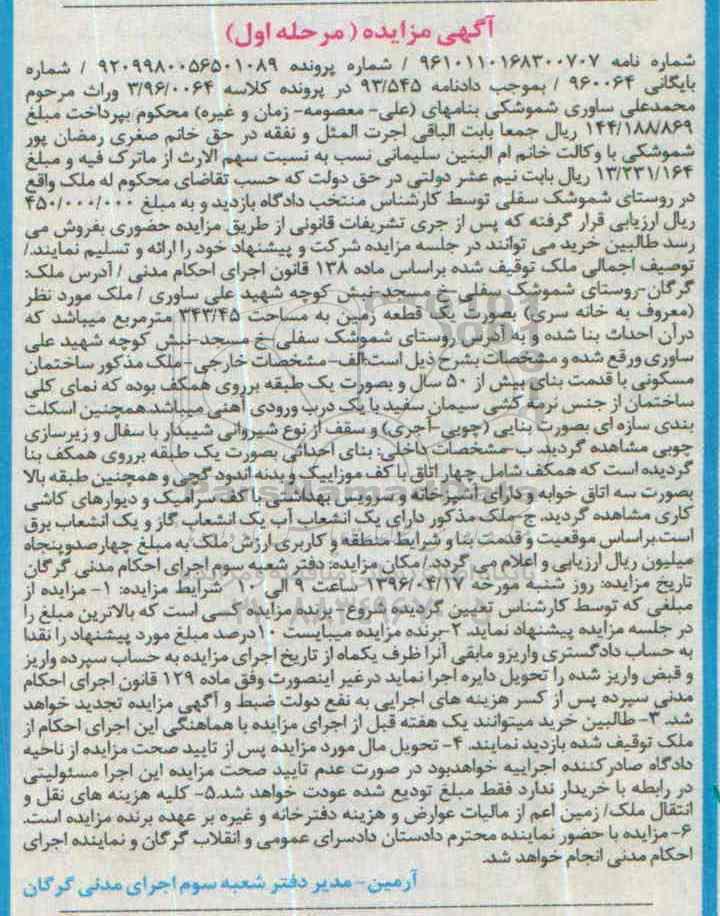 آگهی مزایده (مرحله اول)
شماره نامه ۹۶۱۰۱۱۰۱۶۸۳۰۰۷۰۷ / شماره پرونده ۹۲۰۹۹۸۰۰۵۶۵۰۱۰۸۹ / شماره
بایگانی ۹۶۰۰۶۴ / بموجب دادنامه ۹۳/۵۴۵ در پرونده کلاسه ۳/۹۶/۰۰۶۴ وراث مرحوم
محمدعلی ساوری شموشکی بنامهای (علی- معصومه- زمان و غیره) محکوم بپرداخت مبلغ
۱۴۴/۱۸۸/۸۶۹ ریال جمعا بابت الباقی اجرت المثل و نفقه در حق خانم صغری رمضان پور
شموشکی با وکالت خانم ام البنین سلیمانی نسب به نسبت سهم الارث از ماترک فیه و مبلغ
۱۳/۲۳۱/۱۶۴ ریال بابت نیم عشر دولتی در حق دولت که حسب تقاضای محکوم له ملک واقع
در روستای شموشک سفلی توسط کارشناس منتخب دادگاه بازدید و به مبلغ ۴۵۰/۰۰۰/۰۰۰
ریال ارزیابی قرار گرفته که پس از جری تشریفات قانونی از طریق مزایده حضوری بفروش می
رسد طالبین خرید می توانند در جلسه مزایده شرکت و پیشنهاد خود را ارائه و تسلیم نمایند./
توصیف اجمالی ملک توقیف شده براساس ماده ۱۳۸ قانون اجرای احکام مدنی / آدرس ملک:
گرگان-روستای شموشک سفلی-خ مسجد-نبش کوچه شهید علی ساوری / ملک مورد نظر
(معروف به خانه سری) بصورت یک قطعه زمین به مساحت ۳۴۳/۴۵ مترمربع میباشد که
درآن احداث بنا شده و به آدرس روستای شموشک سفلی-خ مسجد-نبش کوچه شهید علی
ساوری ورقع شده و مشخصات بشرح ذیل است:الف-مشخصات خارجی - ملک مذکور ساختمان
مسکونی با قدمت بنای بیش از ۵۰ سال و بصورت یک طبقه برروی همکف بوده که نمای کلی
ساختمان از جنس نرمه کشی سیمان سفید با یک درب ورودی آهنی میباشد.همچنین اسکلت
بندی سازه ای بصورت بنایی (چوبی-آجری) و سقف از نوع شیروانی شیبدار با سفال و زیرسازی
چوبی مشاهده گردید. ب-مشخصات داخلی: بنای احداثی بصورت یک طبقه برروی همکف بنا
گردیده است که همکف شامل چهار اتاق با کف موزاییک و بدنه اندود گچی و همچنین طبقه بالا
بصورت سه اتاق خوابه و دارای آشپزخانه و سرویس بهداشتی با کف سرامیک و دیوارهای کاشی
کاری مشاهده گردید. ج-ملک مذکور دارای یک انشعاب آب یک انشعاب گاز و یک انشعاب برق
است.براساس موقعیت و قدمت بنا و شرایط منطقه و کاربری ارزش ملک به مبلغ چهارصدوپنجاه
میلیون ریال ارزیابی و اعلام می گردد./ مکان مزایده: دفتر شعبه سوم اجرای احکام مدنی گرگان
تاریخ مزایده: روز شنبه مورخه ۱۳۹۶/۰۴/۱۷ ساعت ۹ الی ۱۰ شرایط مزایده: ۱- مزایده از
مبلغی که توسط کارشناس تعیین گردیده شروع - برنده مزایده کسی است که بالاترین مبلغ را
در جلسه مزایده پیشنهاد نماید. ۲-برنده مزایده میبایست ۱۰درصد مبلغ مورد پیشنهاد را نقدا
به حساب دادگستری واریزو مابقی آنرا ظرف یکماه از تاریخ اجرای مزایده به حساب سپرده واریز
و قبض واریز شده را تحویل دایره اجرا نماید درغیر اینصورت وفق ماده ۱۲۹ قانون اجرای احکام
مدنی سپرده پس از کسر هزینه های اجرایی به نفع دولت ضبط و آگهی مزایده تجدید خواهد
شد. ۳- طالبین خرید میتوانند یک هفته قبل از اجرای مزایده با هماهنگی این اجرای احکام از
ملک توقیف شده بازدید نمایند. ۴- تحویل مال مورد مزایده پس از تایید صحت مزایده از ناحیه
دادگاه صادرکننده اجراییه خواهدبود در صورت عدم تایید صحت مزایده این اجرا مسئولیتی
در رابطه با خریدار ندارد فقط مبلغ تودیع شده عودت خواهد شد.۵- کلیه هزینه های نقل و
انتقال ملک/ زمین اعم از مالیات عوارض و هزینه دفترخانه و غیره بر عهده برنده مزایده است.
۶- مزایده با حضور نماینده محترم دادستان دادسرای عمومی و انقلاب گرگان و نماینده اجرای
احکام مدنی انجام خواهد شد.
آرمین- مدیر دفتر شعبه سوم اجرای مدنی گرگان